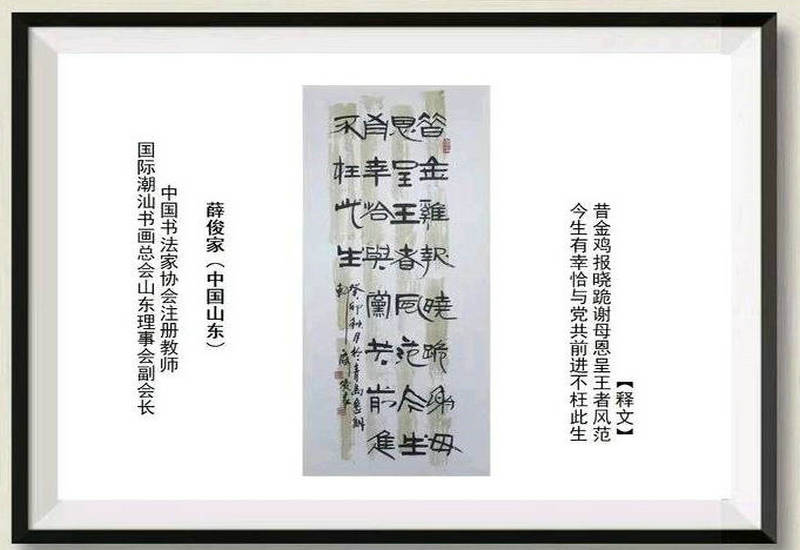 【释文】
昔金鸡报晓跪谢母恩呈王者风范
今生有幸恰与党共前进不枉此生
昔金雞報曉跪謝母
恩呈王者风范今生
有幸恰與黨共前進
不枉此生
癸卯秋月於青島
薛俊家（中国山东）
中国书法家协会注册教师
国际潮汕书画总会山东理事会副会长